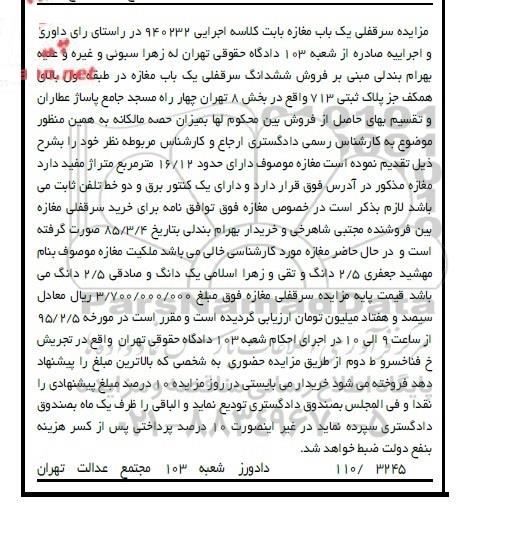 مزایده سرقفلی یک باب مغازه بابت کلاسه اجرایی ۹۴۰۲۳۲ در راستای رای داوری
و اجراییه صادره از شعبه ۱۰۳ دادگاه حقوقی تهران له زهرا سبوئی و غیره و علیه
بهرام بندلی مبنی بر فروش ششدانگ سرقفلی یک باب مغازه در طبقه اول بالای
همکف جز پلاک ثبتی ۷۱۳ واقع در بخش ۸ تهران چهار راه مسجد جامع پاساژ عطاران
و تقسیم بهای حاصل از فروش بین محکوم لها بمیزان حصه مالکانه به همین منظور
موضوع به کارشناس رسمی دادگستری ارجاع و کارشناس مربوطه نظر خود را بشرح
ذیل تقدیم نموده است مغازه موصوف دارای حدود ۱۶/۱۲ مترمربع متراژ مفید دارد
مغازه مذکور در آدرس فوق قرار دارد و دارای یک کنتور برق و دو خط تلفن ثابت می
باشد لازم بذکر است در خصوص مغازه فوق توافق نامه برای خرید سرقفلی مغازه
بین فروشنده مجتبی شاهرخی و خریدار بهرام بندلی بتاریخ ۸۵/۳/۴ صورت گرفته
است و در حال حاضر مغازه مورد کارشناسی خالی می باشد ملکیت مغازه موصوف بنام
مهشید جعفری ۲/۵ دانگ و تقی و زهرا اسلامی یک دانگ و صادقی ۲/۵ دانگ می
باشد قیمت پایه مزایده سرقفلی مغازه فوق مبلغ ۳/۷۰۰/۰۰۰/۰۰۰ ریال معادل
سیصد و هفتاد میلیون تومان ارزیابی گردیده است و مقرر است در مورخه ۹۵/۲/۵
از ساعت ۹ الی ۱۰ در اجرای احکام شعبه ۱۰۳ دادگاه حقوقی تهران واقع در تجریش
خ فناخسرو ط دوم از طریق مزایده حضوری به شخصی که بالاترین مبلغ را پیشنهاد
دهد فروخته می شود خریدار می بایستی در روز مزایده ۱۰ درصد مبلغ پیشنهادی را
نقدا و فی المجلس بصندوق دادگستری تودیع نماید و الباقی را ظرف یک ماه بصندوق
دادگستری سپرده نماید در غیر اینصورت ۱۰ درصد پرداختی پس از کسر هزینه
بنفع دولت ضبط خواهد شد.
۳۲۴۵ /۱۱۰ دادورز شعبه ۱۰۳ مجتمع عدالت تهران
ParsNamadData